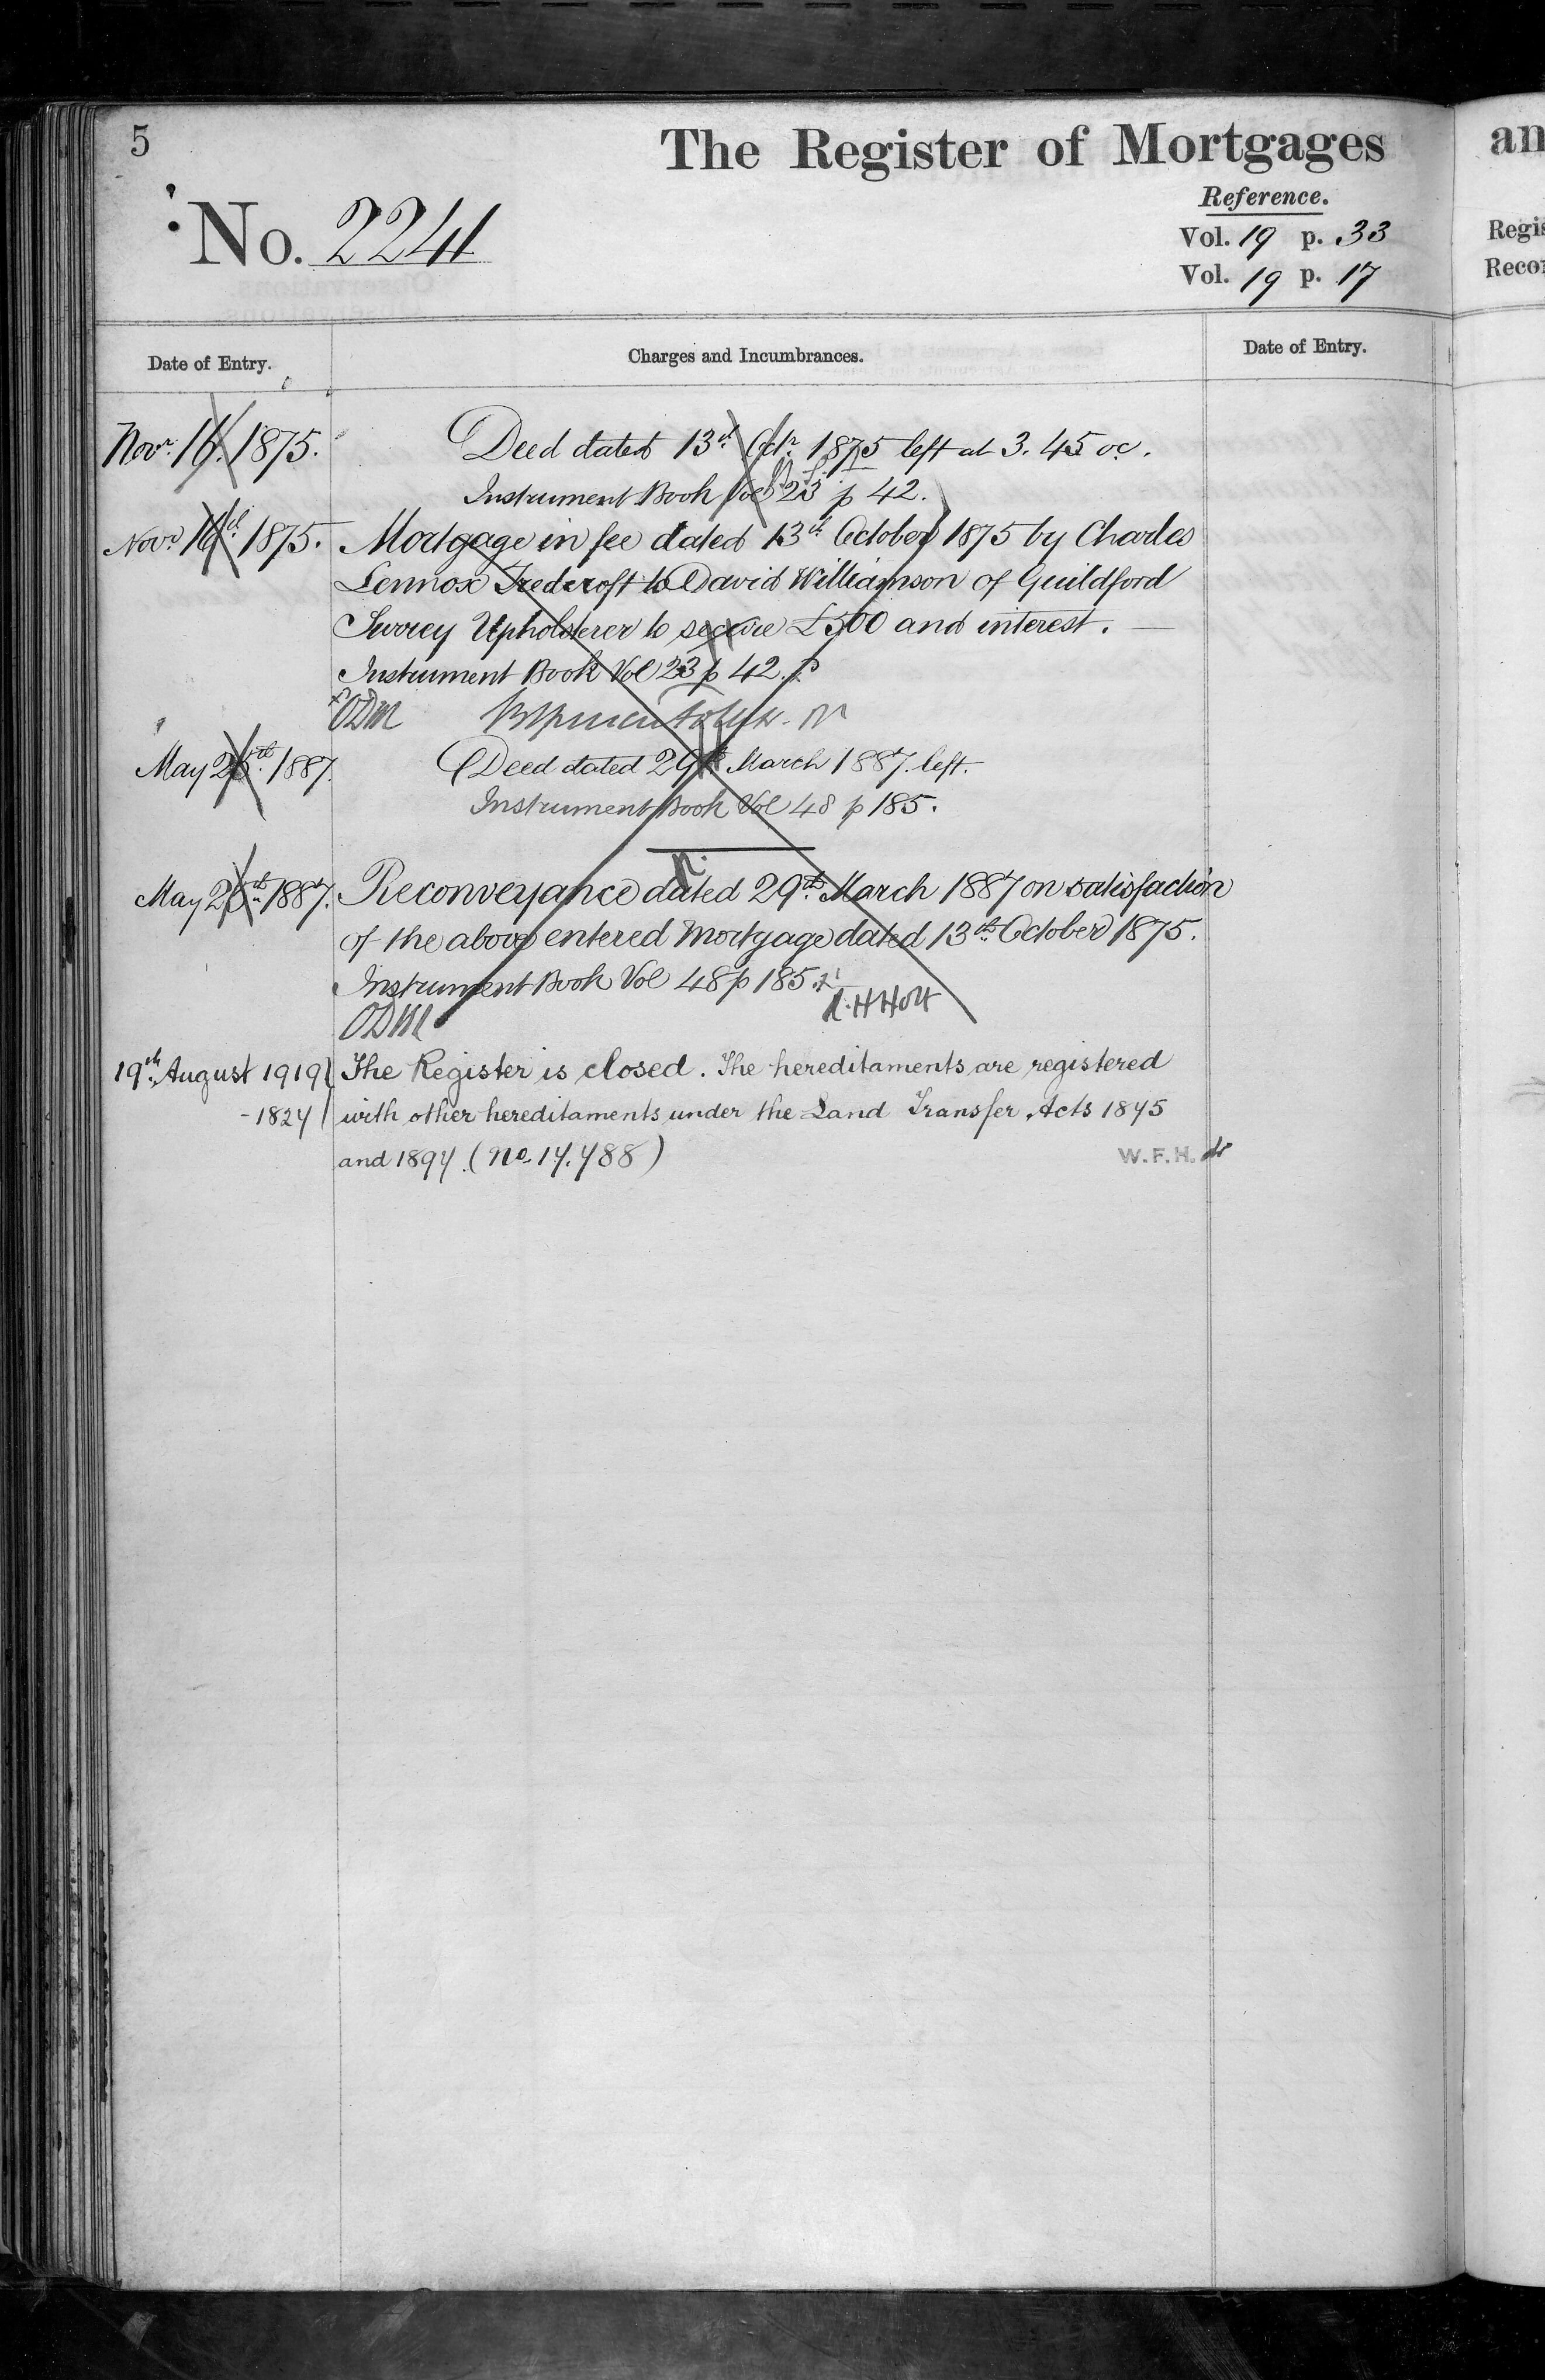 5
The Register of Mortgages
an
Reference.
No. 2241
Vol. 19 p. 33
Regis
Vol. 19 p. 17
Recor
Date of Entry.
Charges and Incumbrances.
Date of Entry.
Novr. 16. 1875.
Deed dated 13th Octr. 1875 left at 3. 45 oc.
Instrument Book Vol 23 p 42.
Novr. 16th 1875.
Mortgage in fee dated 13th October 1875 by Charles
Lennox Tredcroft to David Williamson of Guildford
Surrey Upholsterer to secure £500 and interest.
Instrument Book Vol 23 p 42.
ODM
May 26th 1887.
Deed dated 29th March 1887. left.
Instrument Book Vol 48 p 185.
May 26th 1887.
Reconveyance dated 29th March 1887 on satisfaction
of the above entered Mortgage dated 13th October 1875.
Instrument Book Vol 48 p 185.
ODM
Holt
19th August 1919
The Register is closed. The hereditaments are registered
- 1824
with other hereditaments under the Land Transfer Acts 1875
and 1897. (No. 17.788)
W.F.H.